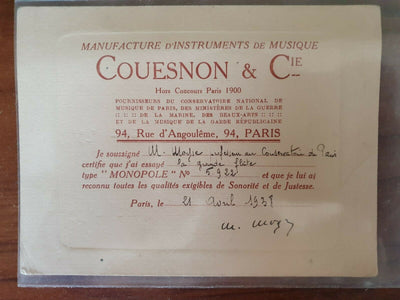 MANUFACTURE D'INSTRUMENTS DE MUSIQUE
COUESNON & CIE
Hors Concours Paris 1900
FOURNISSEURS DU CONSERVATOIRE NATIONAL DE
MUSIQUE DE PARIS, DES MINISTÈRES DE LA GUERRE
:: :: :: DE LA MARINE, DES BEAUX-ARTS :: :: ::
ET DE LA MUSIQUE DE LA GARDE RÉPUBLICAINE
94, Rue d'Angoulême, 94, PARIS
Je soussigné M. Moyse professeur au Conservatoire de Paris
certifie que j'ai essayé la grande flûte
type "MONOPOLE" No 5922 et que je lui ai
reconnu toutes les qualités exigibles de Sonorité et de Justesse.
Paris, le 21 Avril 193
M. Moyse